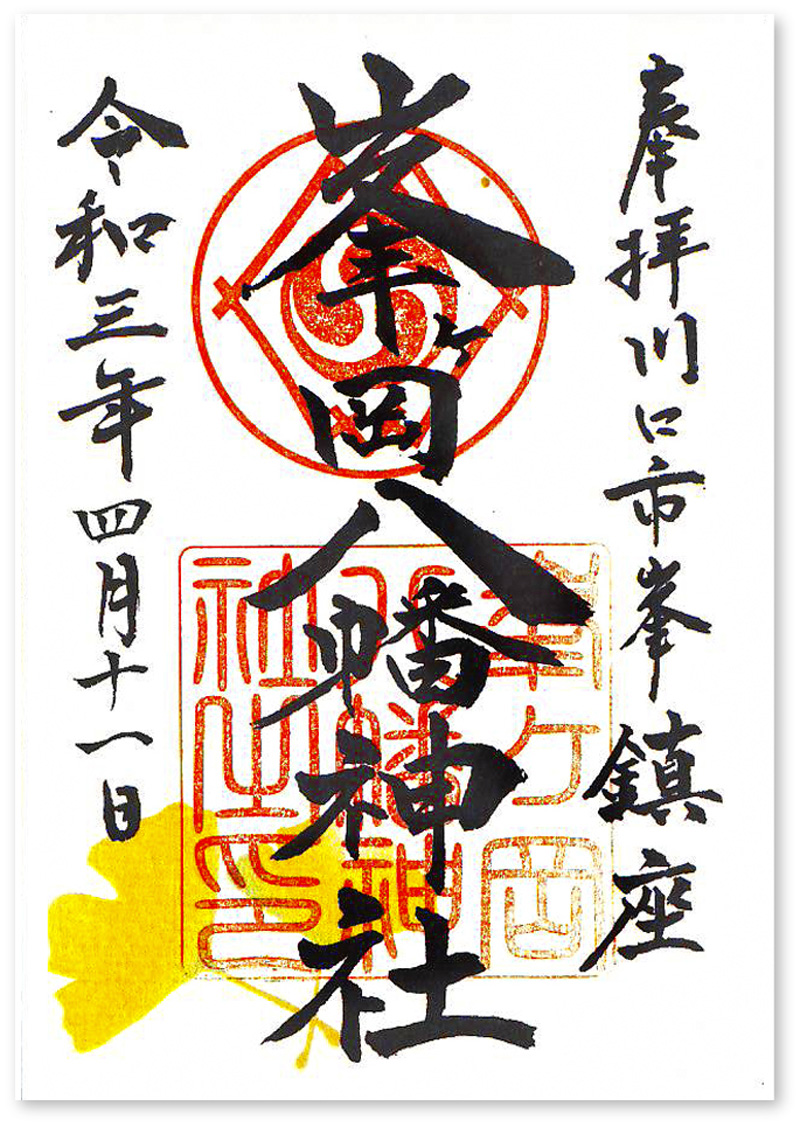 奉拝川口市峯鎮座
峯ヶ岡八幡神社
峯ヶ岡八幡神社之印
令和三年四月十一日